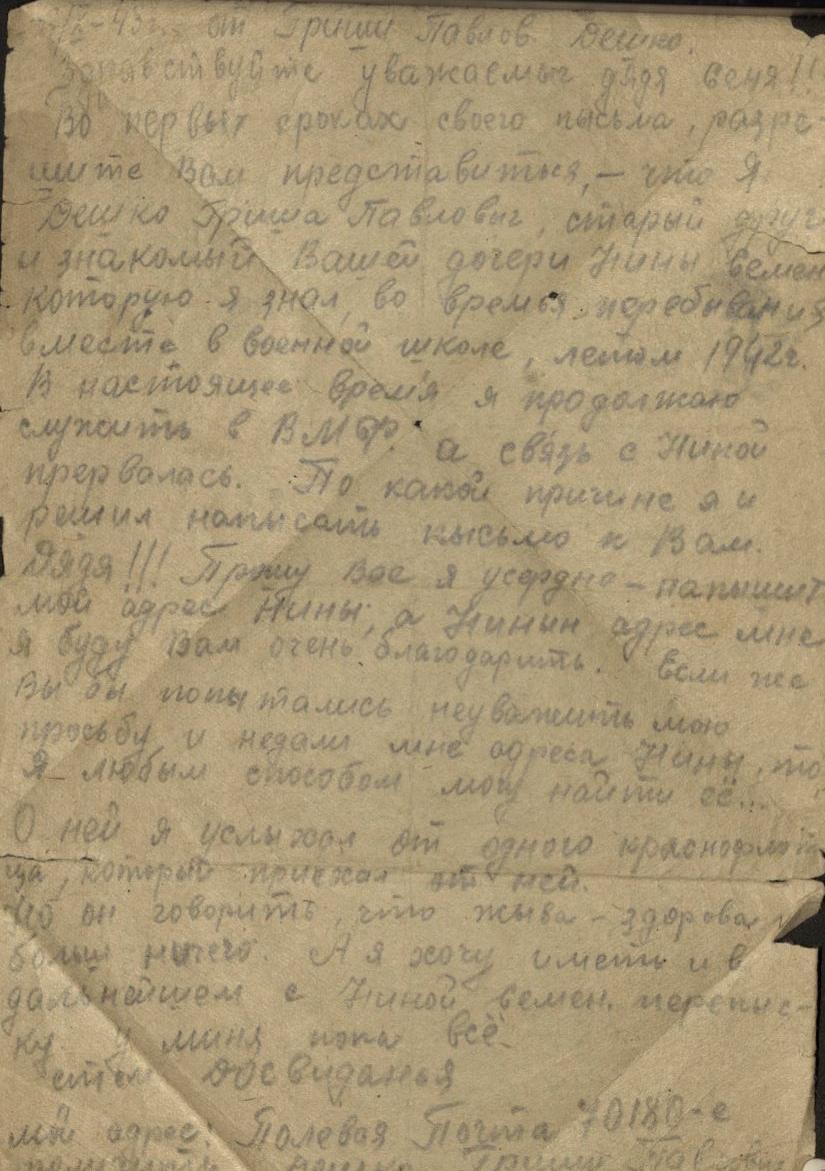 IX-43г. от Гриши Павлов. Дешко.
Здравствуйте уважаемыг дядя Сеня!!
Во первых сроках своего письма, разре-
шите Вам представиться, – что Я
Дешко Гриша Павловыг, старый друг
и знакомый Вашей дочери Нины Семен
которую я знал, во времья перебывания
вместе в военной школе, летом 1942г.
В настоящее время я продолжаю
служить в ВМФ. а связь с Ниной
прервалась. По какой причине я и
решил написать кысьмо к Вам.
Дядя!!! Прошу Вас я усердно – напышит
мой адрес Нины, а Нинин адрес мне
я буду Вам очень благодарить. Если же
Вы бы попытались неуважить мою
просьбу и недали мне адреса Нины, то
Я любым способом могу найти её...
О ней я услыхал от одного краснофлот
ца, который приехал от ней.
Но он говорить, что жыва – здорова и
больш ничего. А я хочу иметь и в
дальнейшем с Ниной Семен. перепис-
ку. У миня пока всё.
стем досвиданья
мой адрес: Полевая Почта 70180-е
Дешко Грише